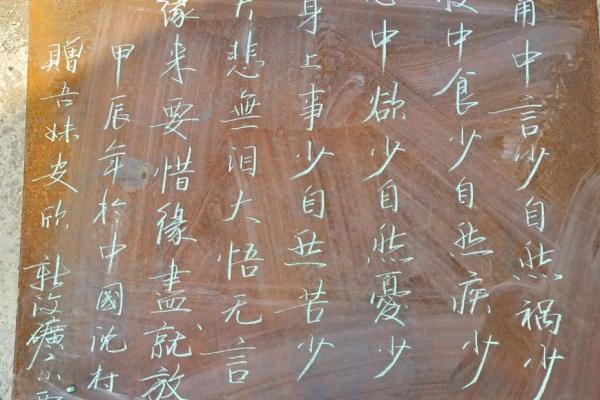 中言少自然祸少
中食少自然疾少
中欲少自然憂少
身上事少自然苦少
悲無泪大悟无言
緣来要惜緣盡就放
甲辰年於中國沈村
贈吾妹安欣 新汶礦